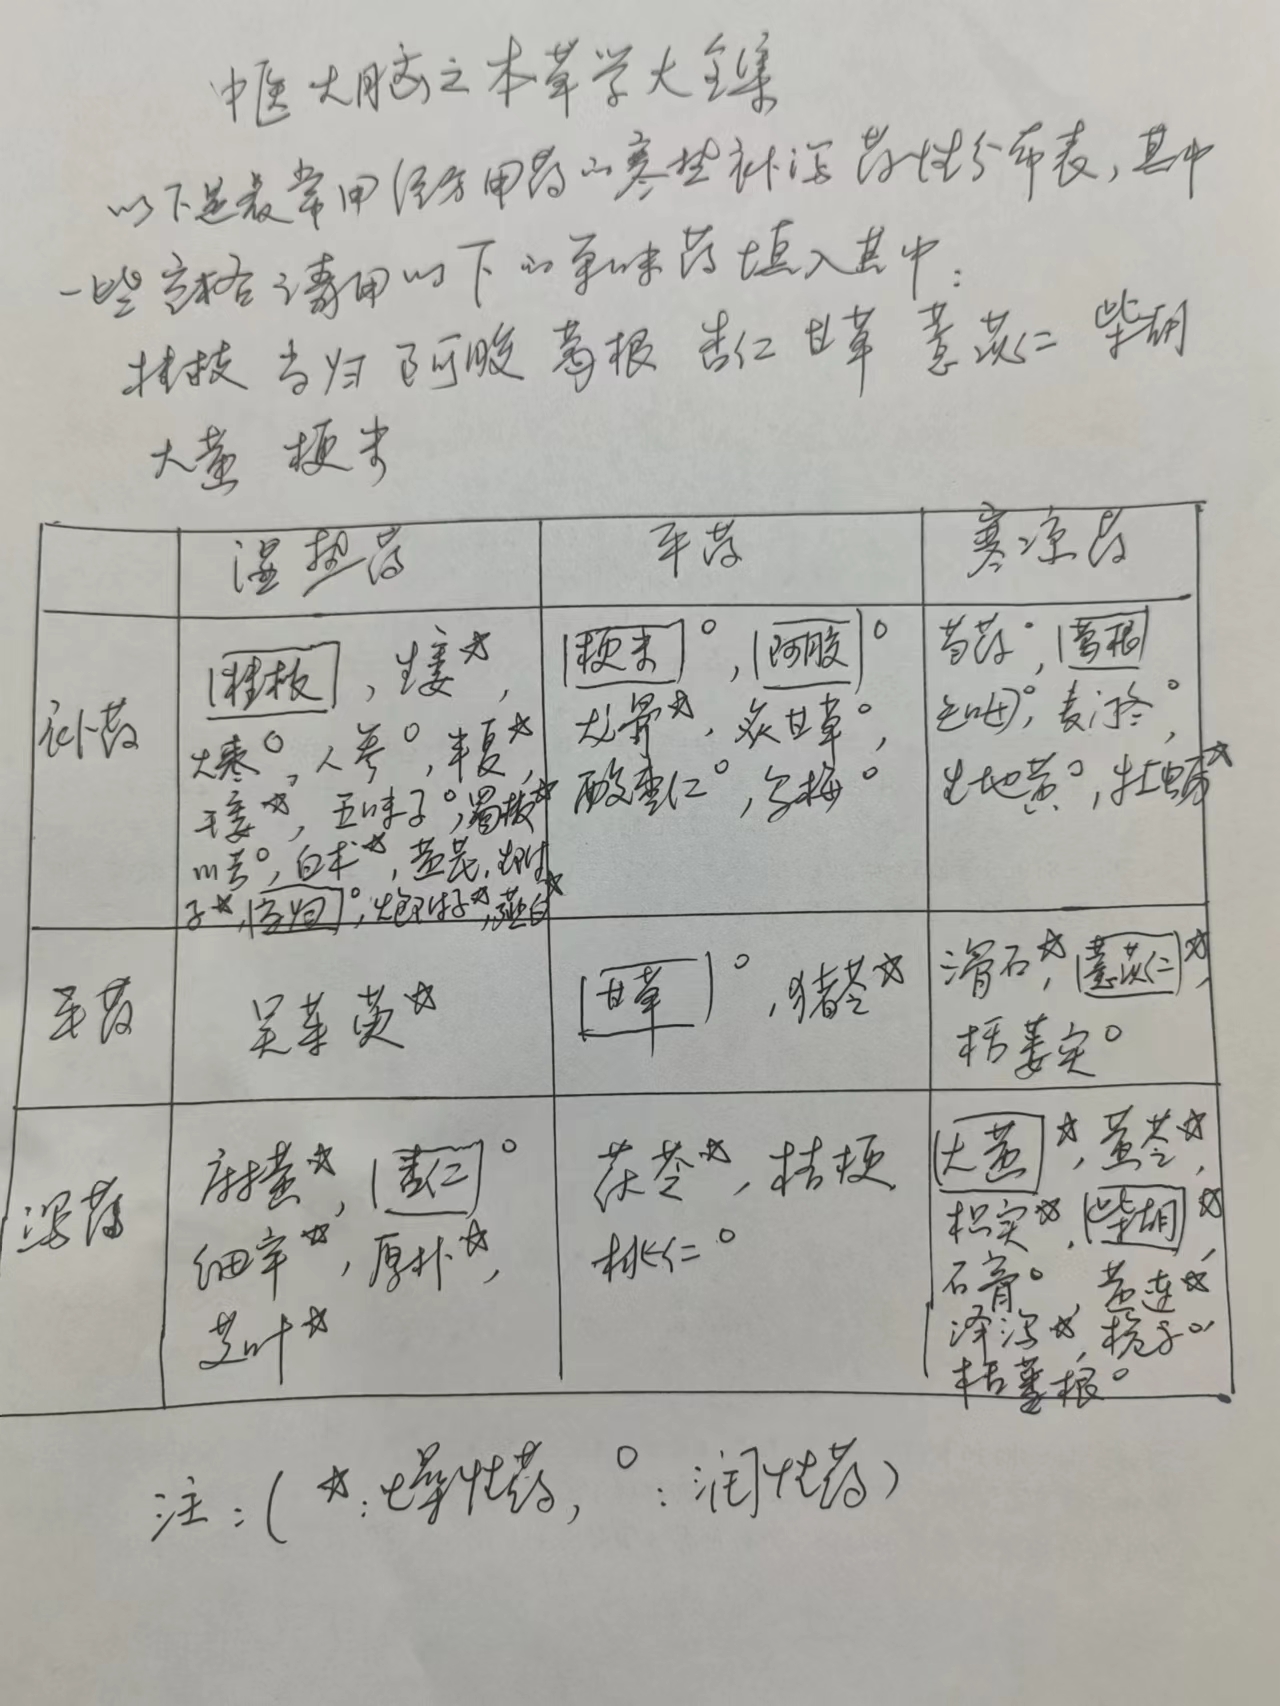 中医大脑之本草学大全集
以下是最常用经方用药的寒热补泻药性分布表,其中
一些空格请用以下的单味药填入其中:
桂枝 当归 阿胶 葛根 杏仁 甘草 薏苡仁 柴胡
大黄 粳米
温热药 平药 寒凉药
补药
桂枝, 生姜☆,
大枣○, 人参○, 半夏☆,
干姜☆, 五味子○, 蜀椒☆
川芎○, 白术☆, 黄芪, 生附
子☆, 当归○, 炮附子☆, 薤白☆
粳米○, 阿胶○
龙骨☆, 炙甘草○,
酸枣仁○, 乌梅○
芍药○, 葛根
知母○, 麦门冬○,
生地黄○, 牡蛎☆
平药
吴茱萸☆
甘草○, 猪苓☆
滑石☆, 薏苡仁☆,
栝蒌实○
泻药
麻黄☆, 杏仁○
细辛☆, 厚朴☆,
艾叶☆
茯苓☆, 桔梗
桃仁○
大黄☆, 黄芩☆,
枳实☆, 柴胡☆,
石膏○ 黄连☆
泽泻☆, 栀子○
栝蒌根○
注:(☆:燥性药, ○:润性药)